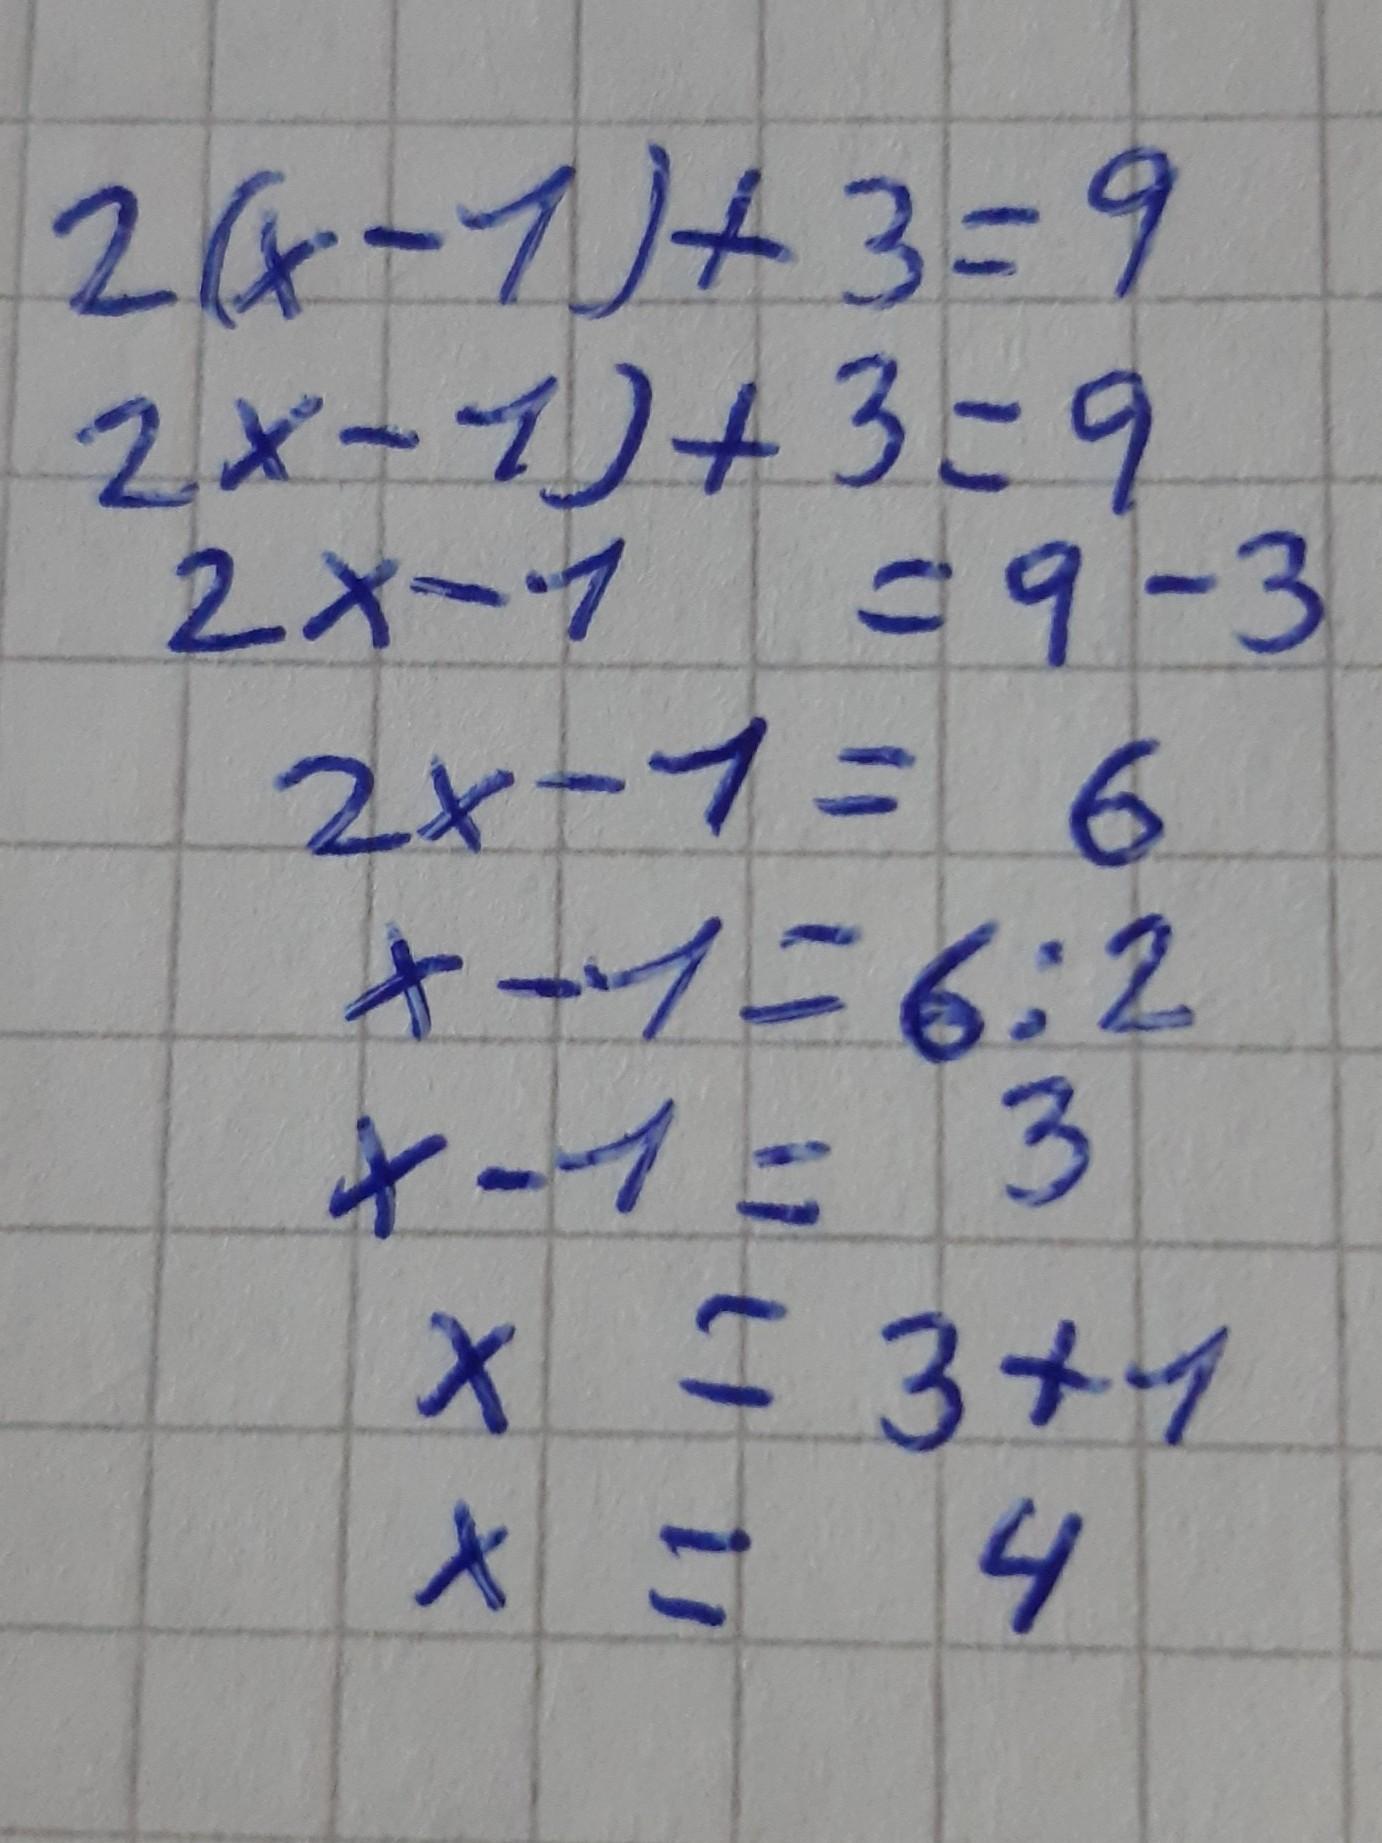 2(x-1)+3=9
2x-1)+3=9
2x-1 =9-3
2x-1= 6
x-1=6:2
x-1= 3
x =3+1
x = 4